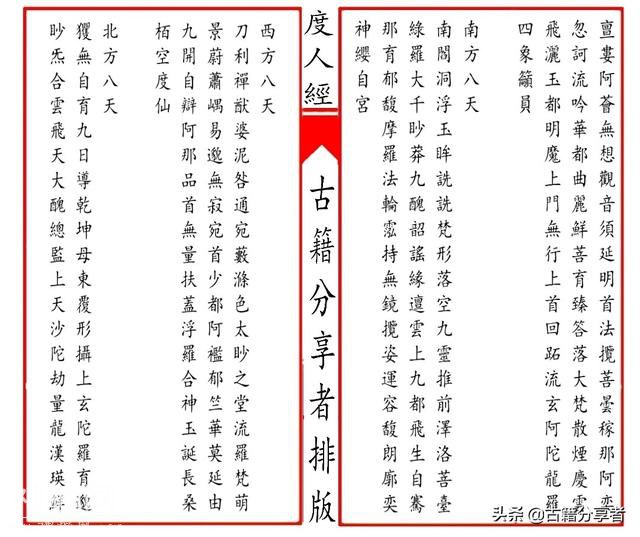 亶婁阿薈無想觀音須延明首法攬菩曇稼那阿奕
忽訶流吟華都曲麗鮮菩育臻答落大梵散煙慶雲
飛灑玉都明魔上門無行上首回跖流玄阿陀龍羅
四象籲員
南方八天
南閻洞浮玉眸詵詵梵形落空九靈推前澤洛菩臺
綠羅大千眇莽九醜韶謠緣邅雲上九都飛生自騫
那育郁馥摩羅法輪霐持無鏡攬姿運容馥朗廓奕
神纓自宮
度人經
古籍分享者排版
西方八天
刀利禪猷婆泥咎通宛藪滌色太眇之堂流羅梵萌
景蔚蕭嵎易邈無寂宛首少都阿襤郁竺華莫延由
九開自辯阿那品首無量扶蓋浮羅合神玉誕長桑
栢空度仙
北方八天
玃無自育九日導乾坤母東覆形攝上玄陀羅育邈
眇炁合雲飛天大醜總監上天沙陀劫量龍漢瑛鮮
头条 @古籍分享者